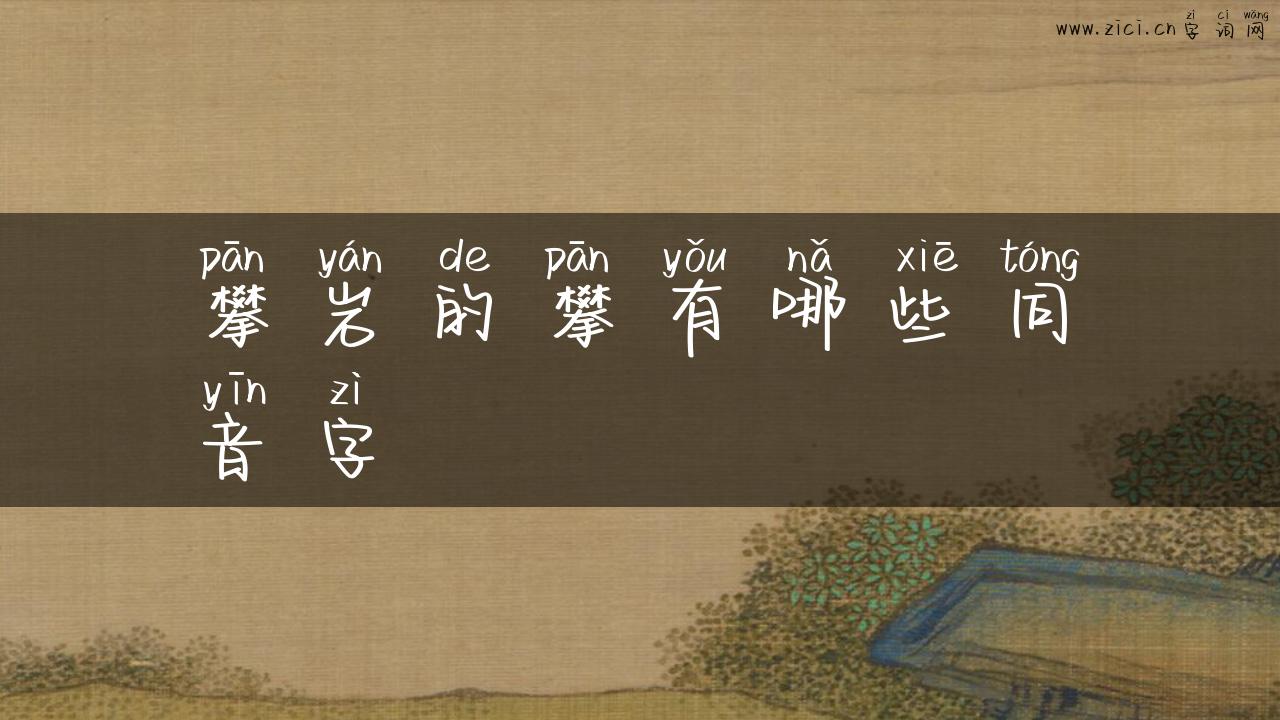 zì cí wǎng
www.zici.cn 字词网
pān yán de pān yǒu nǎ xiē tóng
攀岩的攀有哪些同
yīn zì
音字